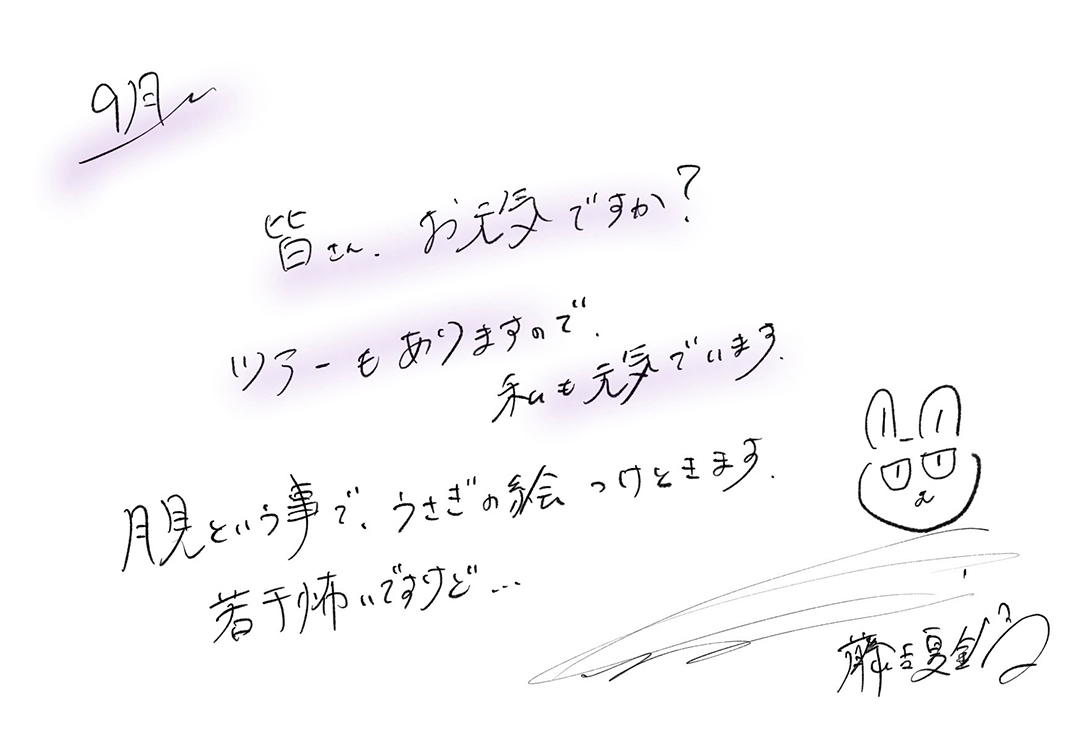 9月
皆さん、お元気ですか?
ツアーもありますので、
私も元気でいます。
月見という事で、うさぎの絵つけときます。
若干怖いですけど…
藤吉夏鈴